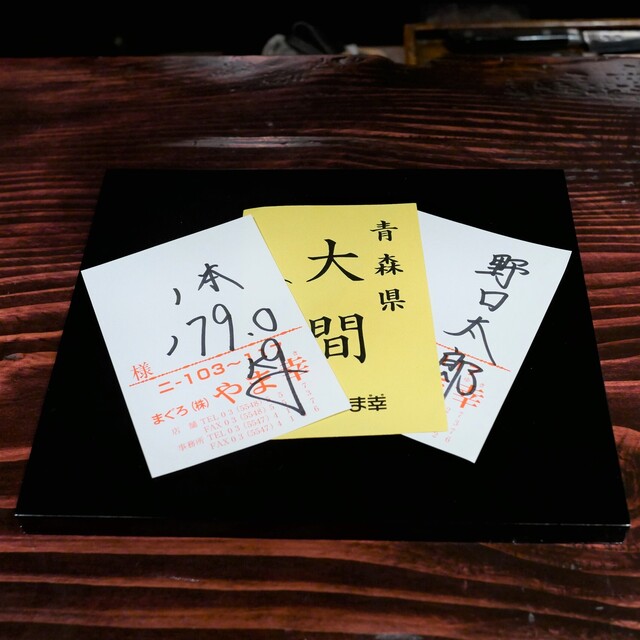 1本
179.0
様
ニ-103~1
まぐろ(株)やま幸
店 場 TEL 03 (5548)
FAX 03 (5548)
事務所 TEL 03 (5547)
FAX 03 (5547)
青森県
大間
ま幸
野口太郎
幸